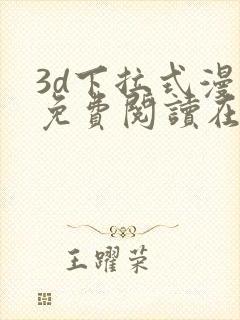 3d下拉式漫
免費閱讀在
王躍荣